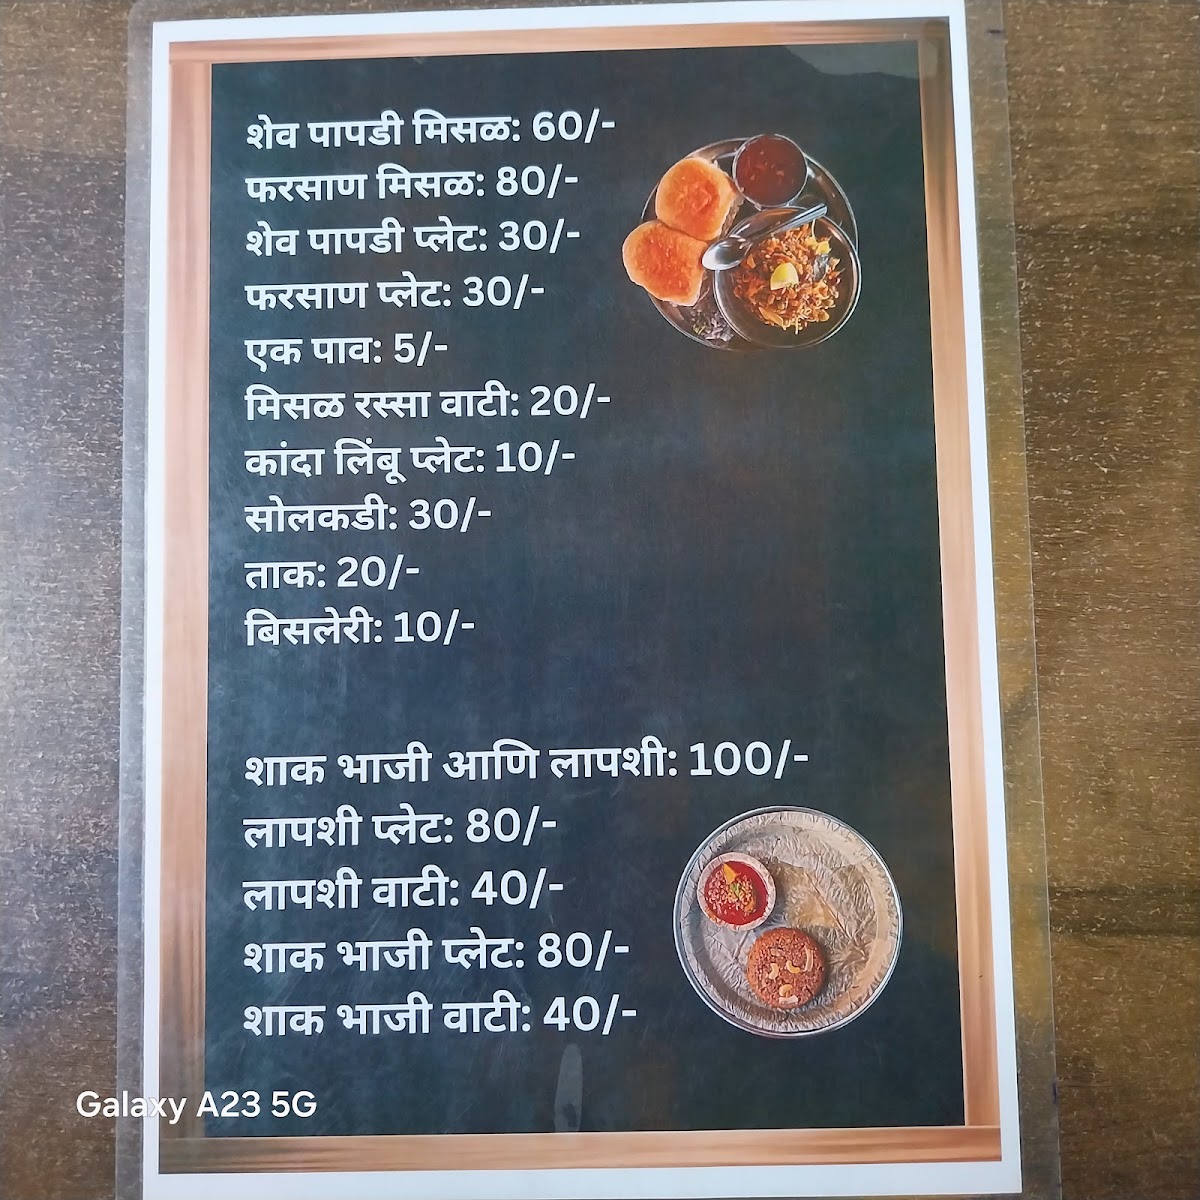 शेव पापडी मिसळ: 60/-
फरसाण मिसळ: 80/-
शेव पापडी प्लेट: 30/-
फरसाण प्लेट: 30/-
एक पाव: 5/-
मिसळ रस्सा वाटी: 20/-
कांदा लिंबू प्लेट: 10/-
सोलकडी: 30/-
ताक: 20/-
बिसलेरी: 10/-
शाक भाजी आणि लापशी: 100/-
लापशी प्लेट: 80/-
लापशी वाटी: 40/-
शाक भाजी प्लेट: 80/-
शाक भाजी वाटी: 40/-
Galaxy A23 5G